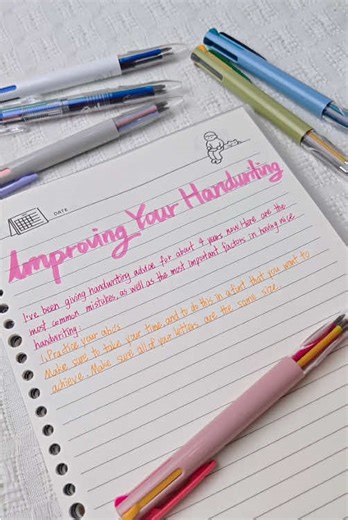 DATE
Improving Your Handwriting
I've been giving handwriting advice for about 4 years now. Here are the
most common mistakes, as well as the most important factors in having nice
handwriting.
1. Practice your abcs
Make sure to take your time, and to do this in a font that you want to
achieve. Make sure all of your letters are the same size